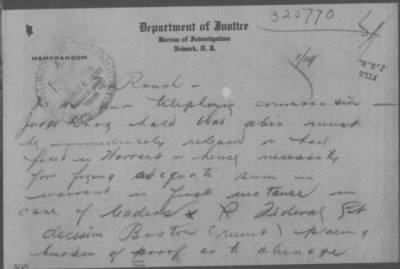 325770
Department of Justice
Bureau of Investigation
Newark, N. J.
MEMORANDUM
1/19
FILE
J.E.H.
Roach -
In our telephonic conversation -
Judge held that alien must
be immediately released or bail
fixed in Warrant - hence necessity
for fixing adequate sum in
warrant in first instance in
case of leaders x Federal Ct
decision Boston (recent) placing
burden of proof as to alienage